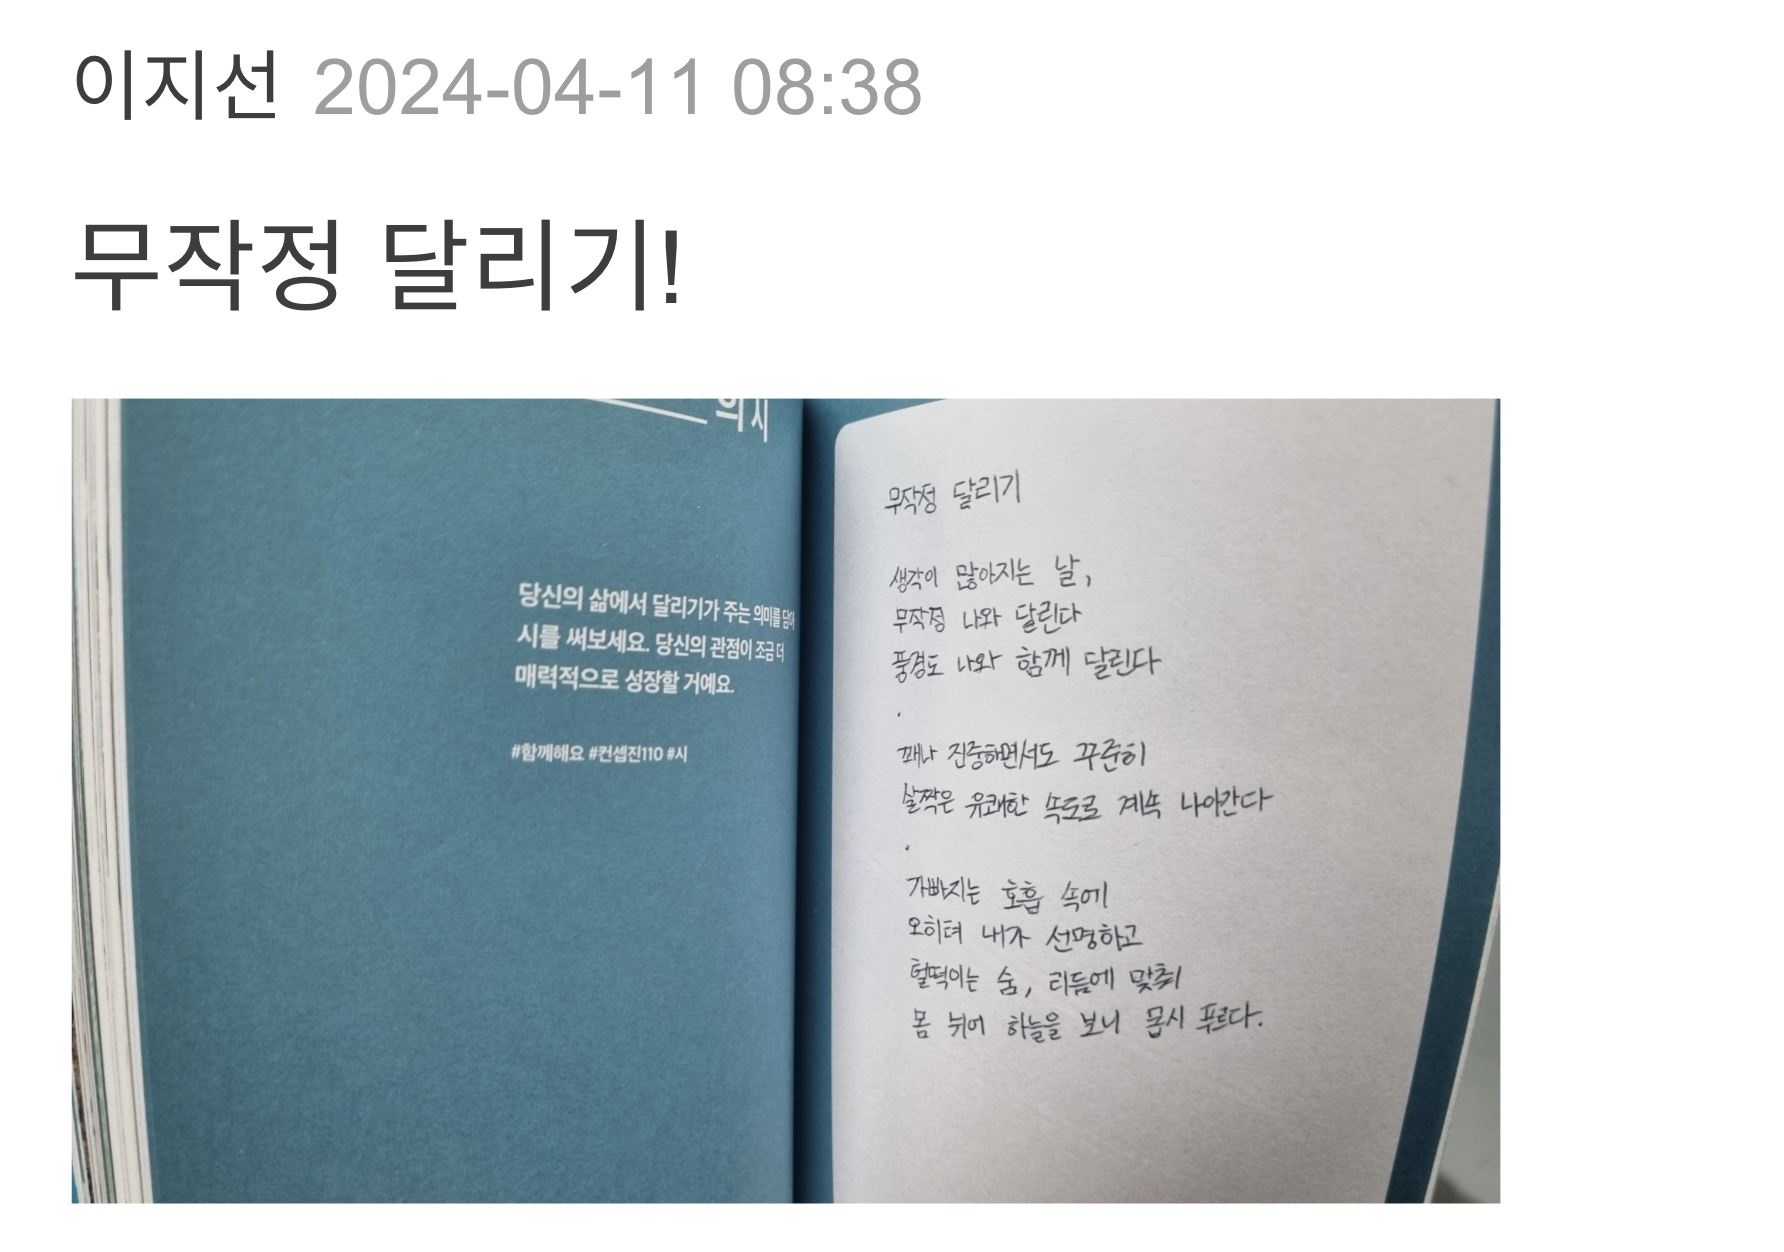 이지선 2024-04-11 08:38
무작정 달리기!
의 시
당신의 삶에서 달리기가 주는 의미를 담아
시를 써보세요. 당신의 관점이 조금 더
매력적으로 성장할 거예요.
#함께해요 #컨셉진110 #시
무작정 달리기
생각이 많아지는 날,
무작정 나와 달린다
풍경도 나와 함께 달린다
.
꽤나 진중하면서도 꾸준히
살짝은 유쾌한 속도로 계속 나아간다
.
가빠지는 호흡 속에
오히려 내가 선명하고
헐떡이는 숨, 리듬에 맞춰
몸 뉘여 하늘을 보니 몹시 푸르다.